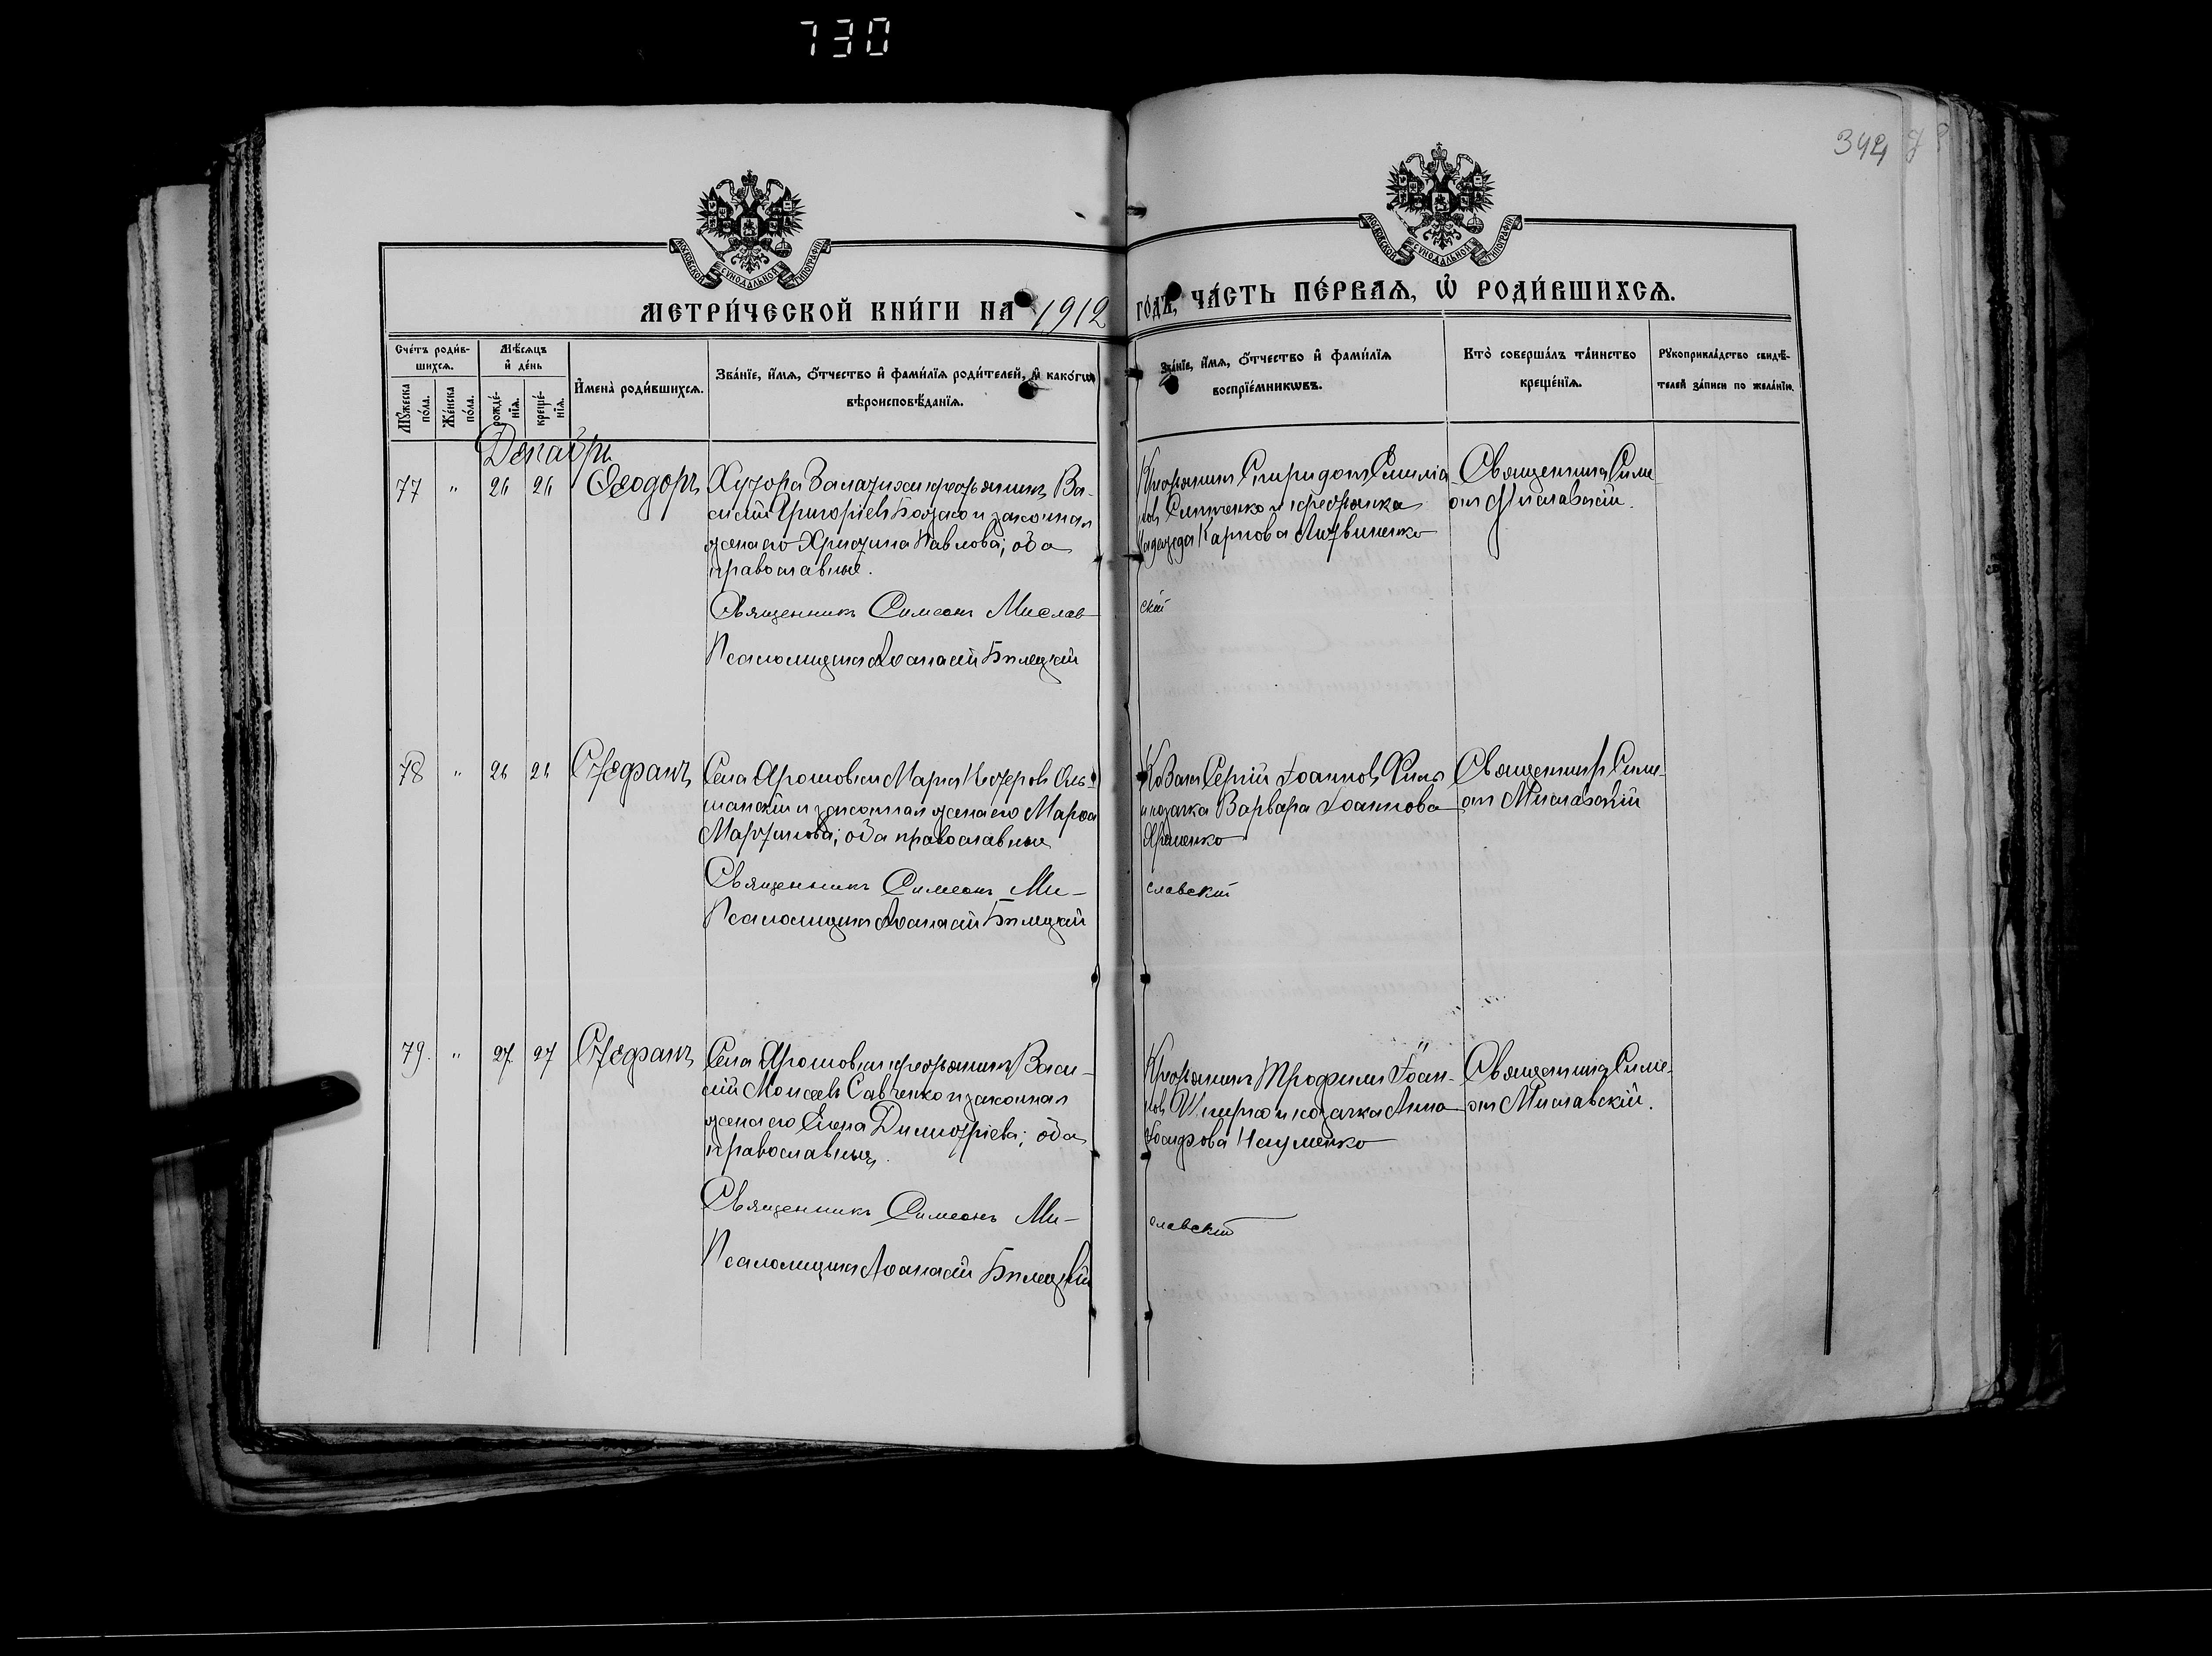 730
342
МОСКОВСКОЙ СѴНОДАЛЬНОЙ ТИПОГРАФІИ
МОСКОВСКОЙ СѴНОДАЛЬНОЙ ТИПОГРАФІИ
МЕТРИ́ЧЕСКОЙ КНИ́ГИ НА 1912 ГО́ДЪ, ЧА́СТЬ ПЕ́РВАѦ, Ѡ҆ РОДИ́ВШИХСѦ.
Сче́тъ роди́в-
шихсѧ.
Мꙋ́жеска
по́ла.
Же́нска
по́ла.
Мѣ́сѧцъ
и҆ де́нь
рожде́-
нїѧ.
креще́-
нїѧ.
И҆мена̀ роди́вшихсѧ.
Зва́нїе, и҆́мѧ, ѻ҆́тчество и҆ фами́лїѧ роди́телей, и҆ како́гѡ
вѣроисповѣ́данїѧ.
Зва́нїе, и҆́мѧ, ѻ҆́тчество и҆ фами́лїѧ
воспрїе́мникѡвъ.
Кто̀ соверша́лъ та́инство
креще́нїѧ.
Рꙋкоприкла́дство свидѣ́-
телей за́писи по жела́нїю.
Декабрь
77 " 26 26 Ѳеодоръ
Хутора крестьянинъ Ва-
силій Григорьевъ и законная
жена его Христина Павлова; оба
православные.
Священникъ Симеонъ Мислав-
скій
Псаломщикъ Аѳанасій Билецкій
Крестьянинъ Спиридонъ
и крестьянка
Надежда Карпова Литвиненко
Священникъ Симе-
онъ Миславскій.
78 " 26 26 Стефанъ
Села Ярошовки Петровъ Оль-
шанскій и законная жена его Марѳа
Мартинова; оба православные
Священникъ Симеонъ Ми-
славскій
Псаломщикъ Аѳанасій Билецкій
Козакъ Сергій Іоанновъ
и козачка Варвара Іоаннова
Яременко
Священникъ Симе-
онъ Миславскій
79. " 27 27 Стефанъ
Села Ярошовки крестьянинъ Васи-
лій Моисеевъ Савченко и законная
жена его Елена Димитріева; оба
православные.
Священникъ Симеонъ Ми-
славскій
Псаломщикъ Аѳанасій Билецкій
Крестьянинъ Трофимъ Іоан-
новъ и козачка Анна
Іосифова Науменко
Священникъ Симе-
онъ Миславскій.